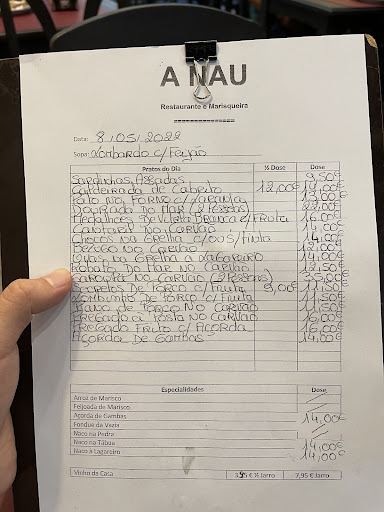 A NAU
Restaurante e Marisqueira
Data: 8/05/2022
Sopa: Lombardo c/Feijão
Pratos do Dia ½ Dose Dose
Sardinhas Assadas 9,50€
Caldeirada de Cabrito 12,00€
Pato no Forno c/Laranja
Dourada do Mar (2 Pessoas) 22,00€
Medalhões de Vitela Branca c/Fruta 16,00€
Cantaril no Carvão
Chocos na Grelha c/ovas/tinta 14,00€
Besugo no Carvão
Lulas na Grelha a Lagareiro 14,00€
Robalo do Mar no Carvão 12,50€
Garoupa no Carvão (2 Pessoas)
Secretos de Porco c/Fruta 9,00€ 11,50€
Lombinho de Porco c/Fruta 11,50€
Piano de Porco no Carvão 11,50€
Pregado à Posta no Carvão 16,00€
Pregado Frito c/Açorda 16,00€
Açorda de Gambas 14,00€
Especialidades Dose
Arroz de Marisco
Feijoada de Marisco
Açorda de Gambas 14,00€
Fondue da Vazia
Naco na Pedra
Naco na Tábua 14,00€
Naco à Lagareiro 14,00€
Vinho da Casa ½ Jarro 7,95 € Jarro